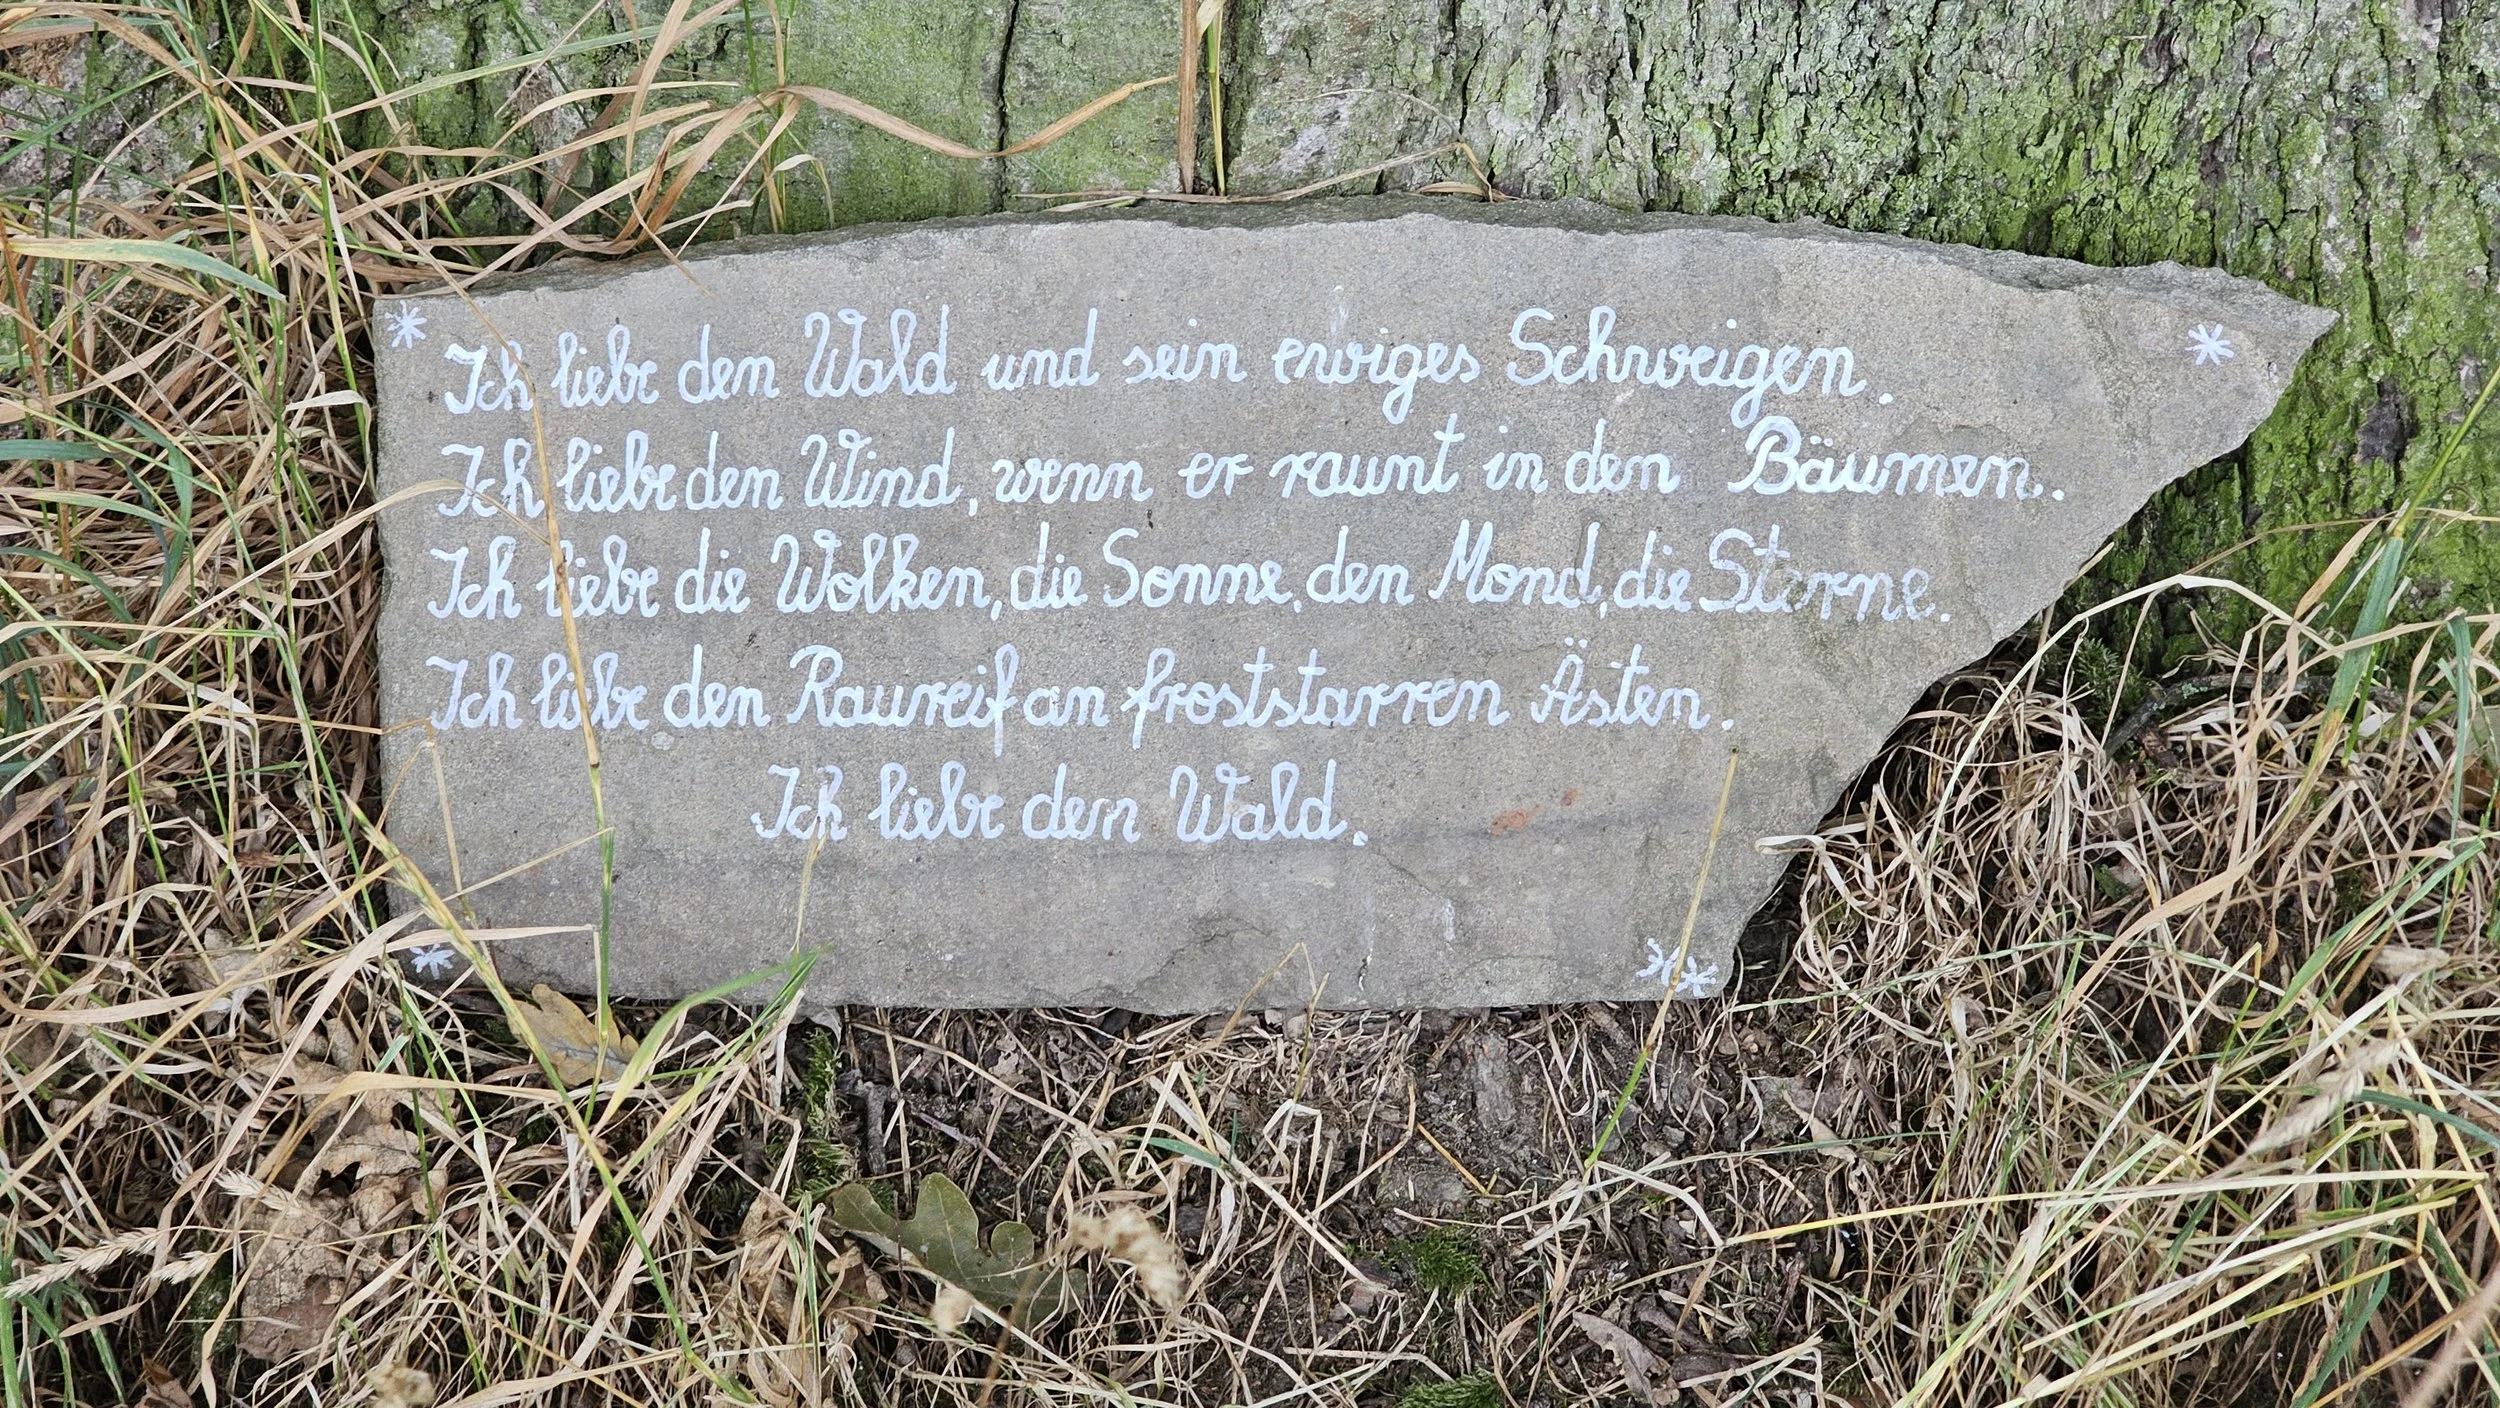 Ich liebe den Wald und sein ewiges Schweigen.
Ich liebe den Wind, wenn er raunt in den Bäumen.
Ich liebe die Wolken, die Sonne, den Mond, die Sterne.
Ich liebe den Raureif an froststarren Ästen.
Ich liebe den Wald.